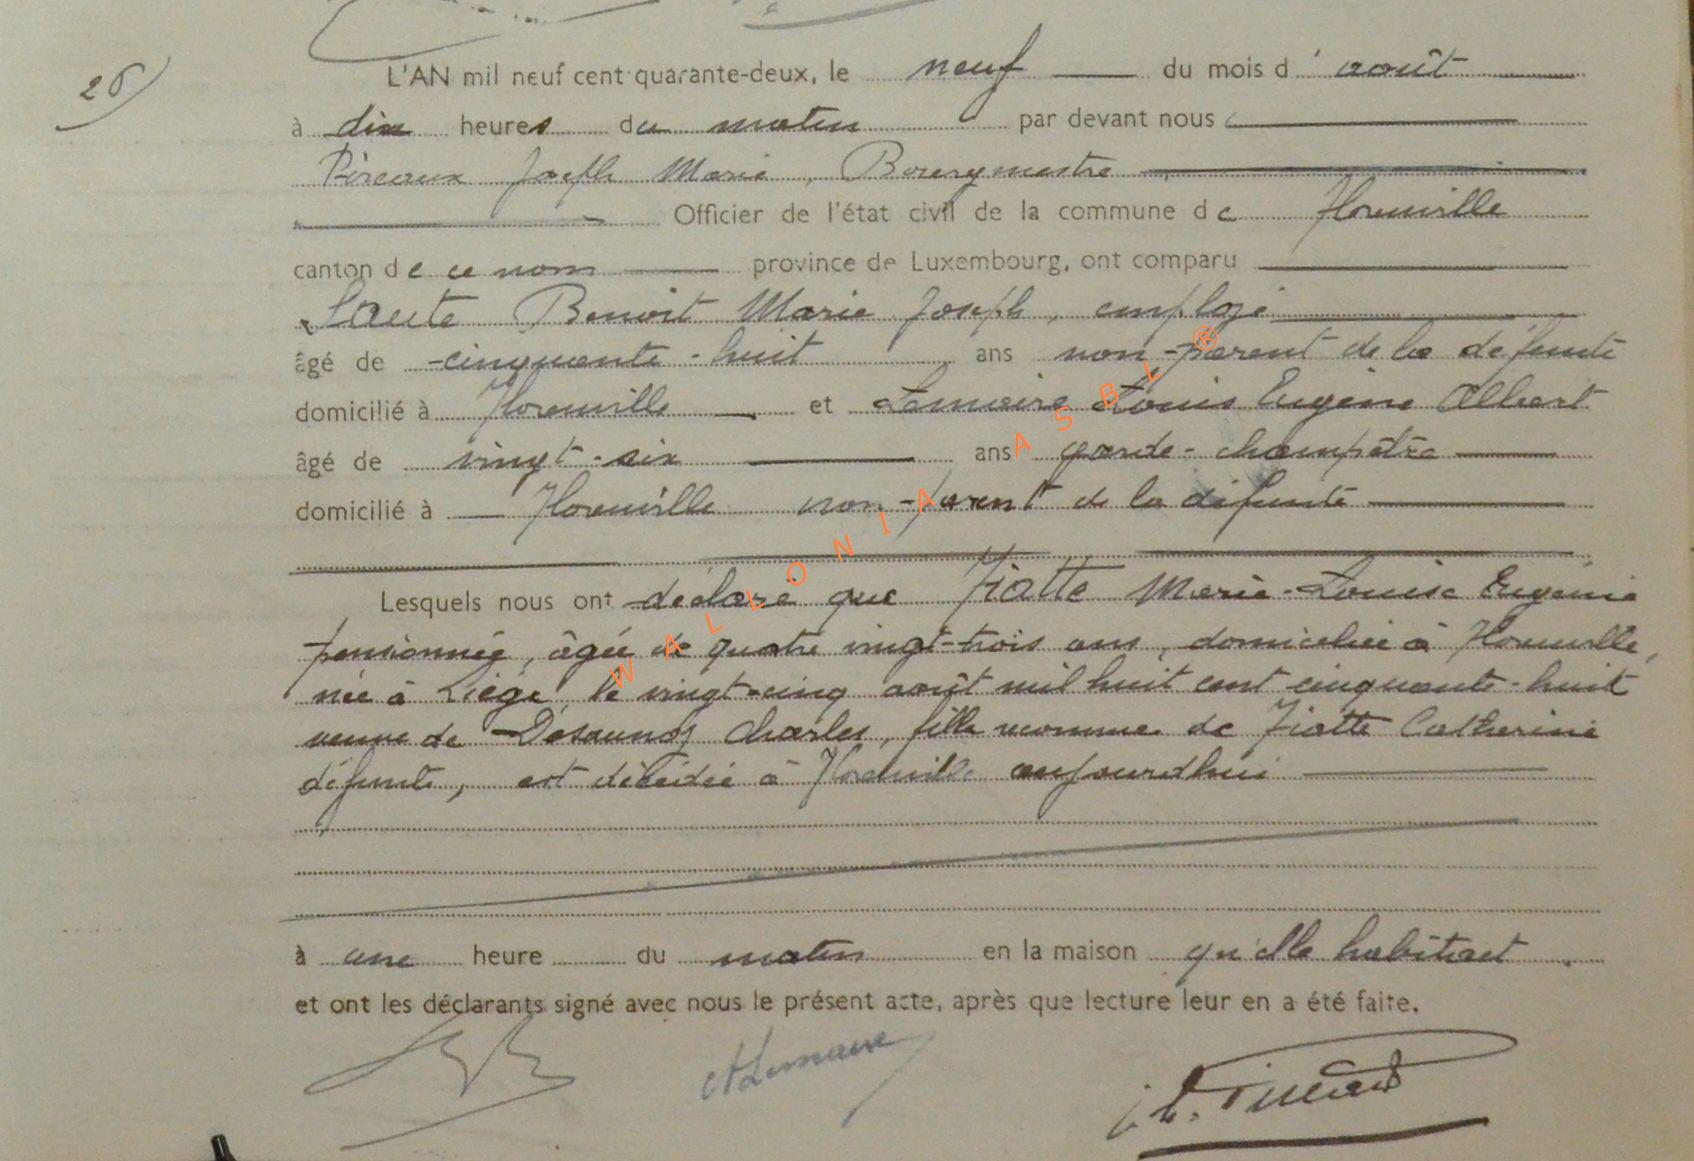 26)
L'AN mil neuf cent quarante-deux, le neuf du mois d' août
à dix heures du matin par devant nous
Joseph Marie, Bourgmestre
Officier de l'état civil de la commune de Florenville
canton de ce nom province de Luxembourg, ont comparu
Laute Benoit Marie Joseph, employé
âgé de cinquante-huit ans non-parent de la défunte
domicilié à Florenville et Lemaire Louis Eugène Albert
âgé de vingt-six ans garde-champêtre
domicilié à Florenville non-parent de la défunte
Lesquels nous ont déclaré que Fiatte Marie-Louise Eugénie
pensionnée, âgée de quatre vingt-trois ans, domiciliée à Florenville,
née à Liège, le vingt-cinq août mil huit cent cinquante-huit
veuve de Charles, fille reconnue de Fiatte Catherine
défunte, est décédée à Florenville aujourd'hui
à une heure du matin en la maison qu'elle habitait.
et ont les déclarants signé avec nous le présent acte, après que lecture leur en a été faite.
ALemaire
WALLONIA ASBL ®